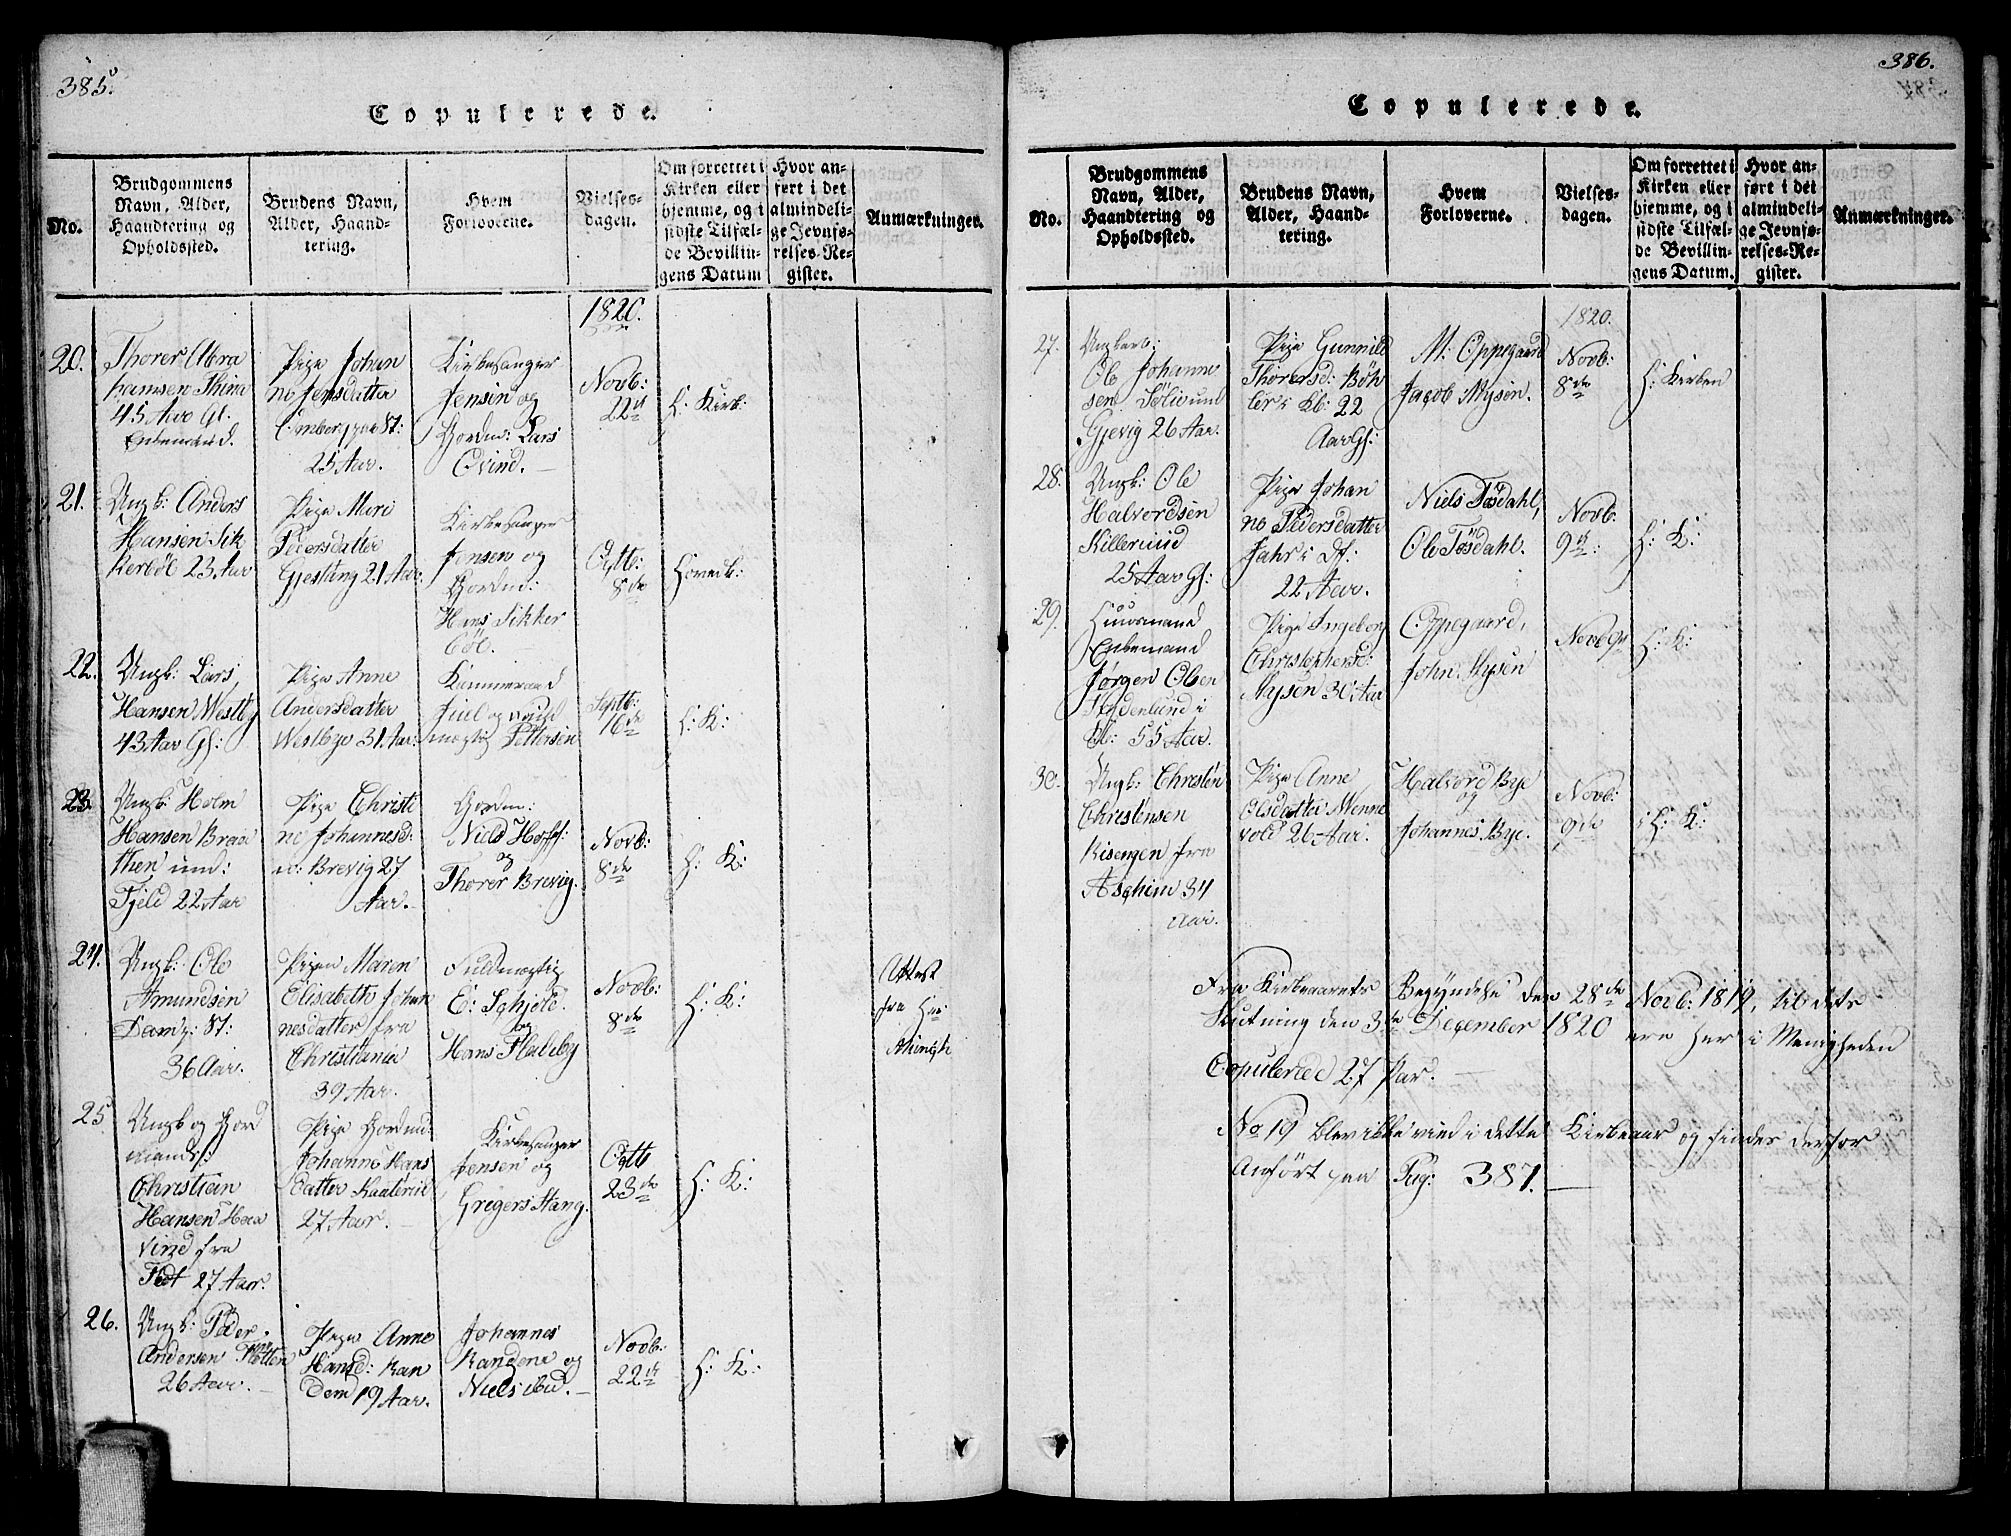 385.
Copulerede.
No.
Brudgommens
Navn, Alder,
Haandtering og
Opholdssted.
Brudens Navn,
Alder, Haand-
tering.
Hvem
Forloverne.
Vielses-
dagen.
Om forrettet i
Kirken eller
hjemme, og i
sidste Tilfæl-
de Bevillin-
gens Datum
Hvor an-
ført i det
almindeli-
ge Jevnfø-
relses-Re-
gister.
Anmærkninger.
1820.
20.
Thorer Abra
hamsen
45 Aar Gl.
Enkemand.
Pige Johan
ne Jensdatter
25 Aar.
Kirkesanger
Jensen og
Gordm: Lars
Ovind.
Novb:
22
H: Kirk:
21.
Ungk: Anders
Hansen Sik
kerböl 23 Aar
Pige Mari
Pedersdatter
Gjestling 21 Aar.
Kirkesanger
Jensen og
Gordm:
Hans Sikker
böl.
8de
Hovedk:
22.
Ungk: Lars
Hansen Westby
43 Aar Gl:
Pige Anne
Andersdatter
Westbye 31 Aar.
Kammeraad
Juel og Fuld
mægtig Pettersen
Septb:
16de
H: K:
23.
Ungk: Holm
Hansen Braa
then und:
Fjeld 22 Aar
Pige Christi
ne Johannesd:
Brevig 27
Aar.
Gordm:
Niels Hoff:
og
Thorer Brevig.
Novb:
8de
H: K:
24.
Ungk: Ole
Amundsen
36 Aar.
Pigen Maren
Elisabeth Johan
nesdatter fra
Christiania
39 Aar.
Fuldmægtig
E: Schjold
og
Hans Fladeby
Novb:
8de
H: K:
Attest
fra
25
Ungk og Gord
mand:
Christian
Hansen Haa
vind fra
27 Aar.
Pige Gordmd:
Johanne Hans
datter
27 Aar.
Kirkesanger
Jensen og
Gregers Stang.
23de
H: K:
26.
Ungk: Peder
Andersen
26 Aar.
Pige Anne
Hansd: Ran
dem 19 Aar.
Johannes
Randem og
Niels ibid.
Novb:
22
H: K:
386.
Copulerede.
No.
Brudgommens
Navn, Alder,
Haandtering og
Opholdssted.
Brudens Navn,
Alder, Haand-
tering.
Hvem
Forloverne.
Vielses-
dagen.
Om forrettet i
Kirken eller
hjemme, og i
sidste Tilfæl-
de Bevillin-
gens Datum.
Hvor an-
ført i det
almindeli-
ge Jevnfø-
relses-Re-
gister.
Anmærkninger.
1820.
27.
Ungkarl:
Ole Johanne
sen Sölie und
Gjevig 26 Aar.
Pige Gunnild
Thorersd: Böh
ler i Kb: 22
Aar Gl:
M: Oppegaard
Jacob Mysen.
Novb:
8de
H: Kirken
28.
Ungk: Ole
Halvordsen
Killerud
25 Aar Gl:
Pige Johan
ne Pedersdatter
22 Aar.
Niels Tösdahl,
Ole Tösdahl.
Novb:
9
H: K:
29.
Huusmand
Enkemand
Jørgen Olsen
55 Aar.
Pige Ingeborg
Christophersd:
Mysen 30 Aar
Oppegaard,
John Mysen
Novb 9
H: K:
30.
Ungk: Christen
Christensen
Risengen fra
Aschim 34
Aar.
Pige Anne
Olsdatter Menne
vold 26 Aar.
Halvord Bye
og
Johannes Bye.
Novb:
9de
H: K:
Fra Kirkeaarets Begyndelse den 28de Novb: 1819, til dets
Slutning den 3de December 1820 ere her i Menigheden
Copulerede 27 Par.
No 19 blev ikke viet i dette Kirkeaar og findes derfor
Anført paa Pag: 387.